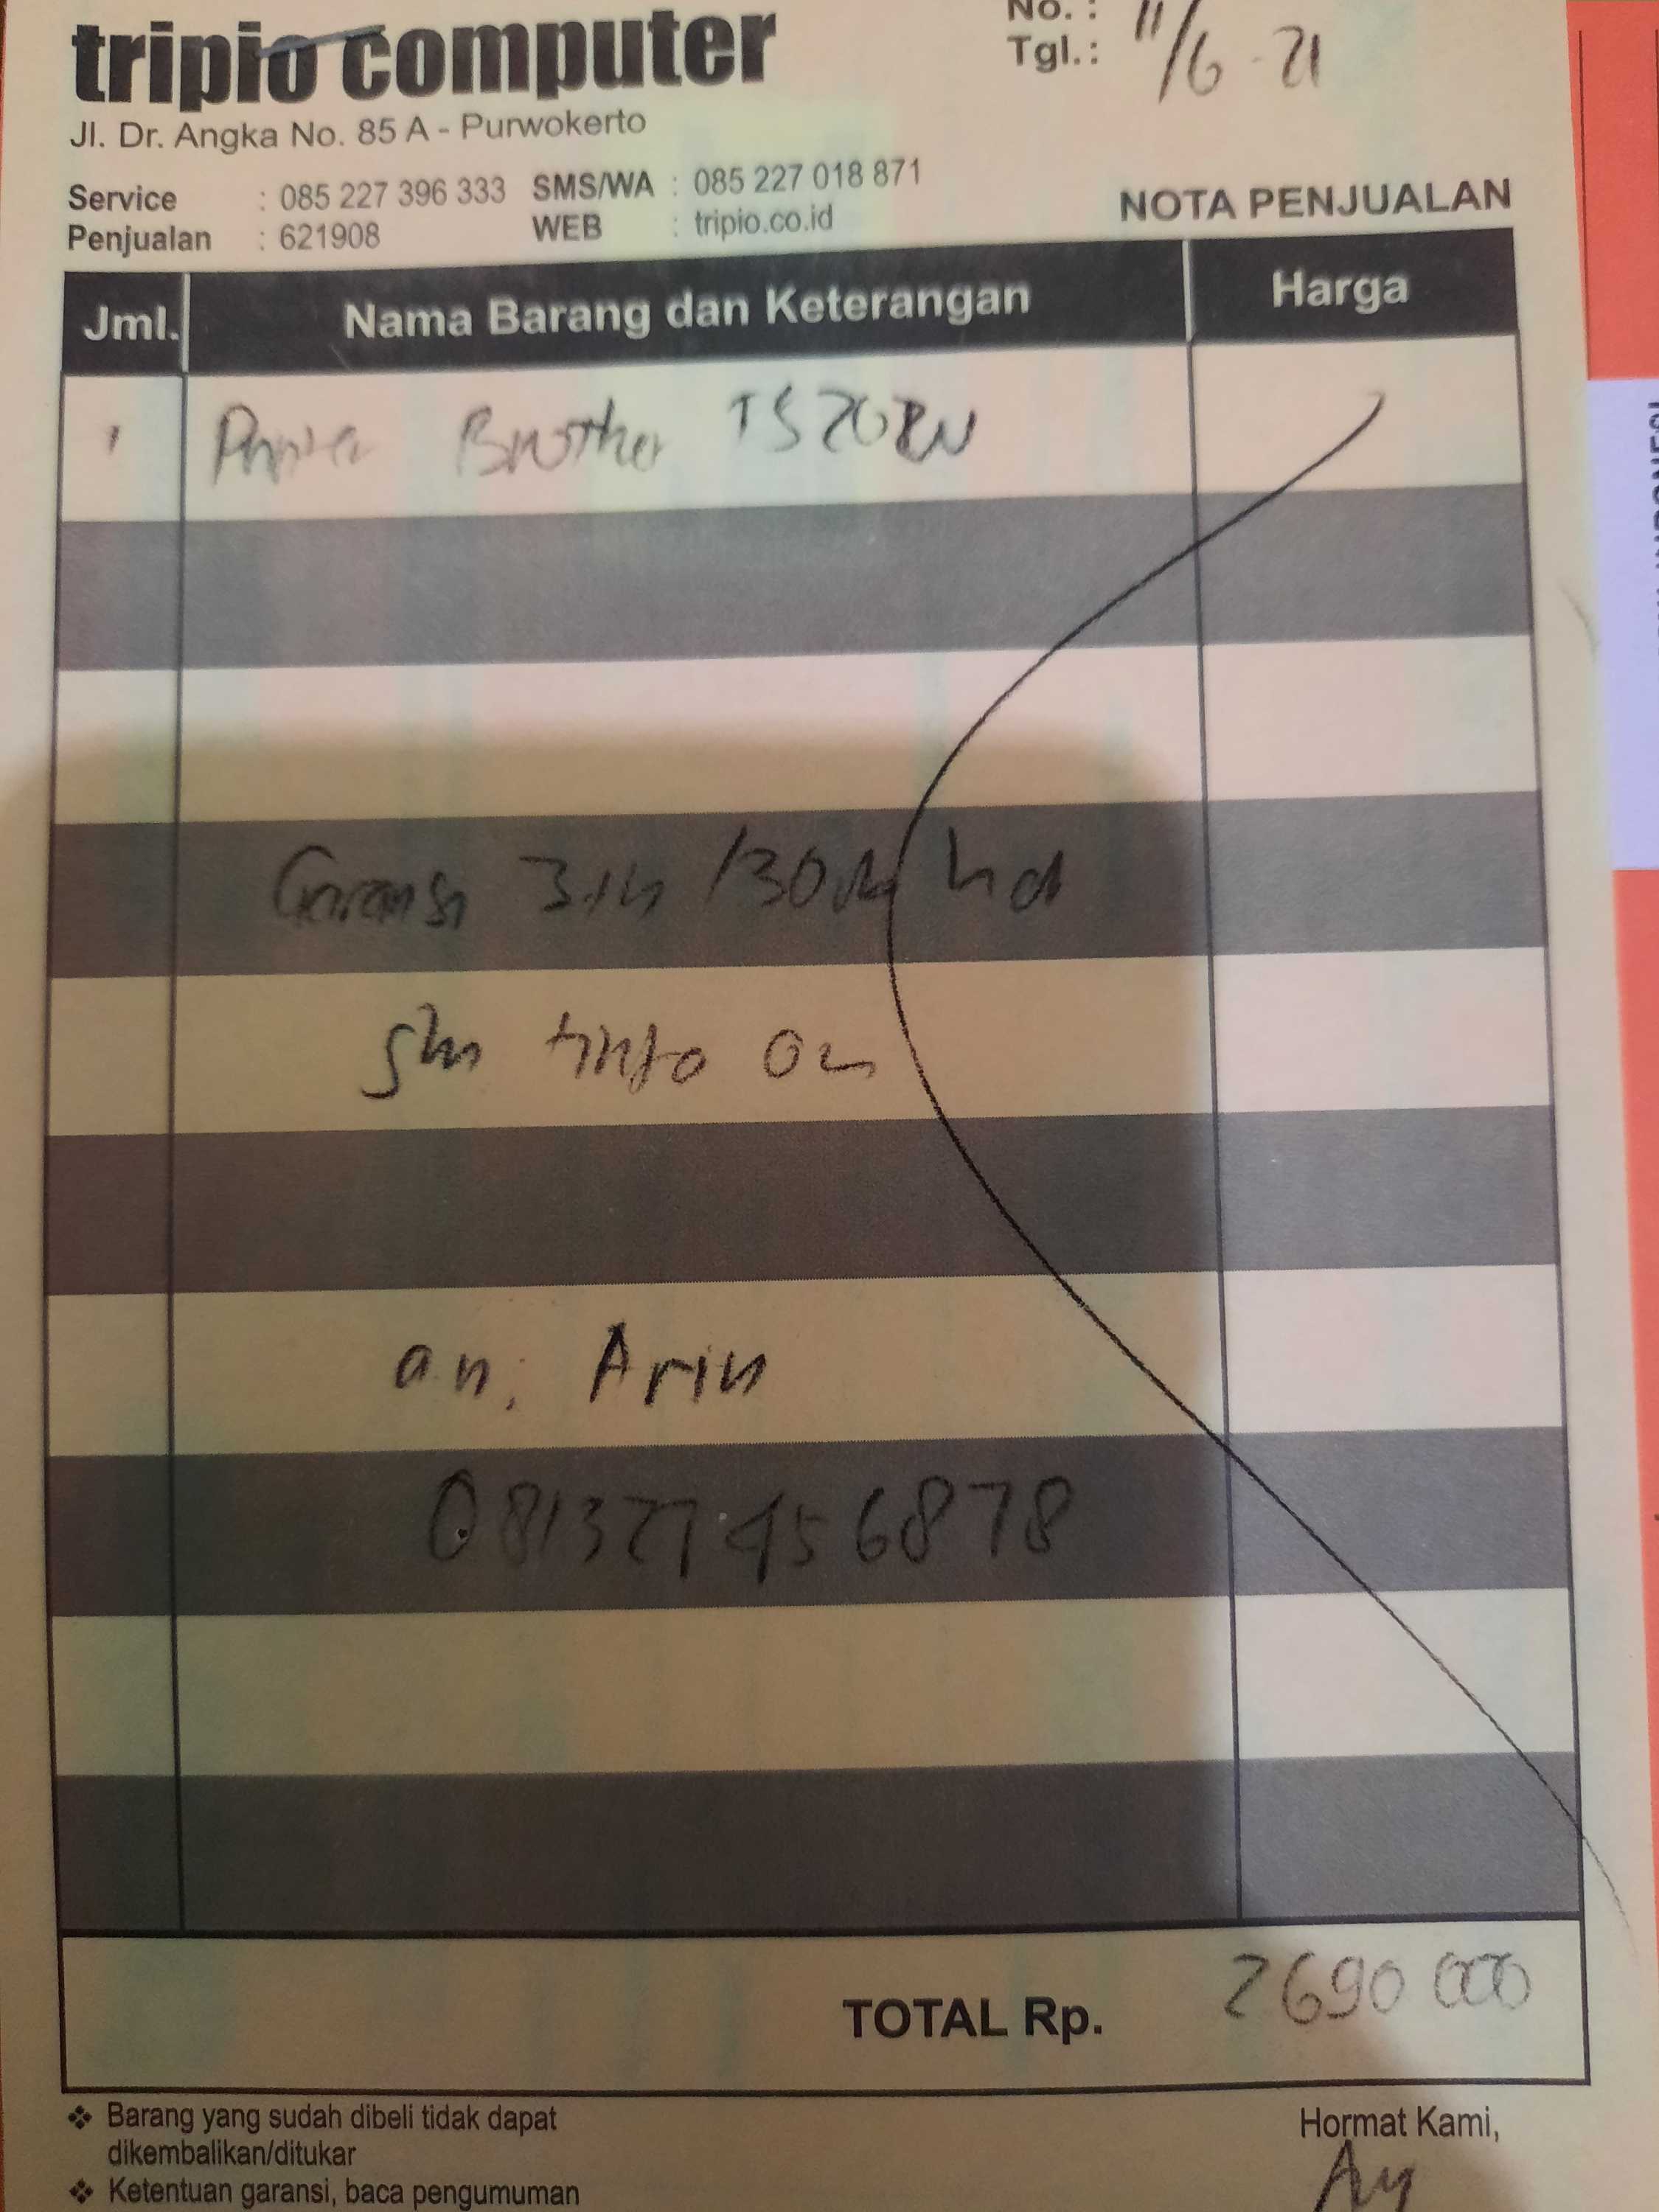 tripio computer
No. :
Tgl.: 11/6-21
Jl. Dr. Angka No. 85 A - Purwokerto
Service : 085 227 396 333 SMS/WA : 085 227 018 871
Penjualan : 621908 WEB : tripio.co.id
NOTA PENJUALAN
Jml. Nama Barang dan Keterangan Harga
1 Brother
Garansi 3 th /30
an. Arin
081327456878
TOTAL Rp. 2690 000
❖ Barang yang sudah dibeli tidak dapat
dikembalikan/ditukar
❖ Ketentuan garansi, baca pengumuman
Hormat Kami,